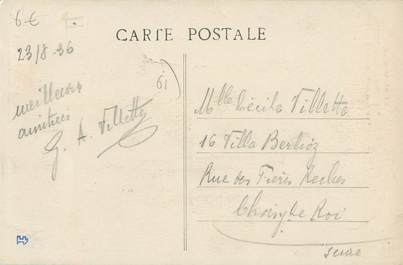 6 €
CARTE POSTALE
23/8-36
61
meilleures
amitiés
G. A. Villette
Mlle Cécile Villette
16 Villa Berlioz
Rue des Frères
Choisy le Roi
Seine